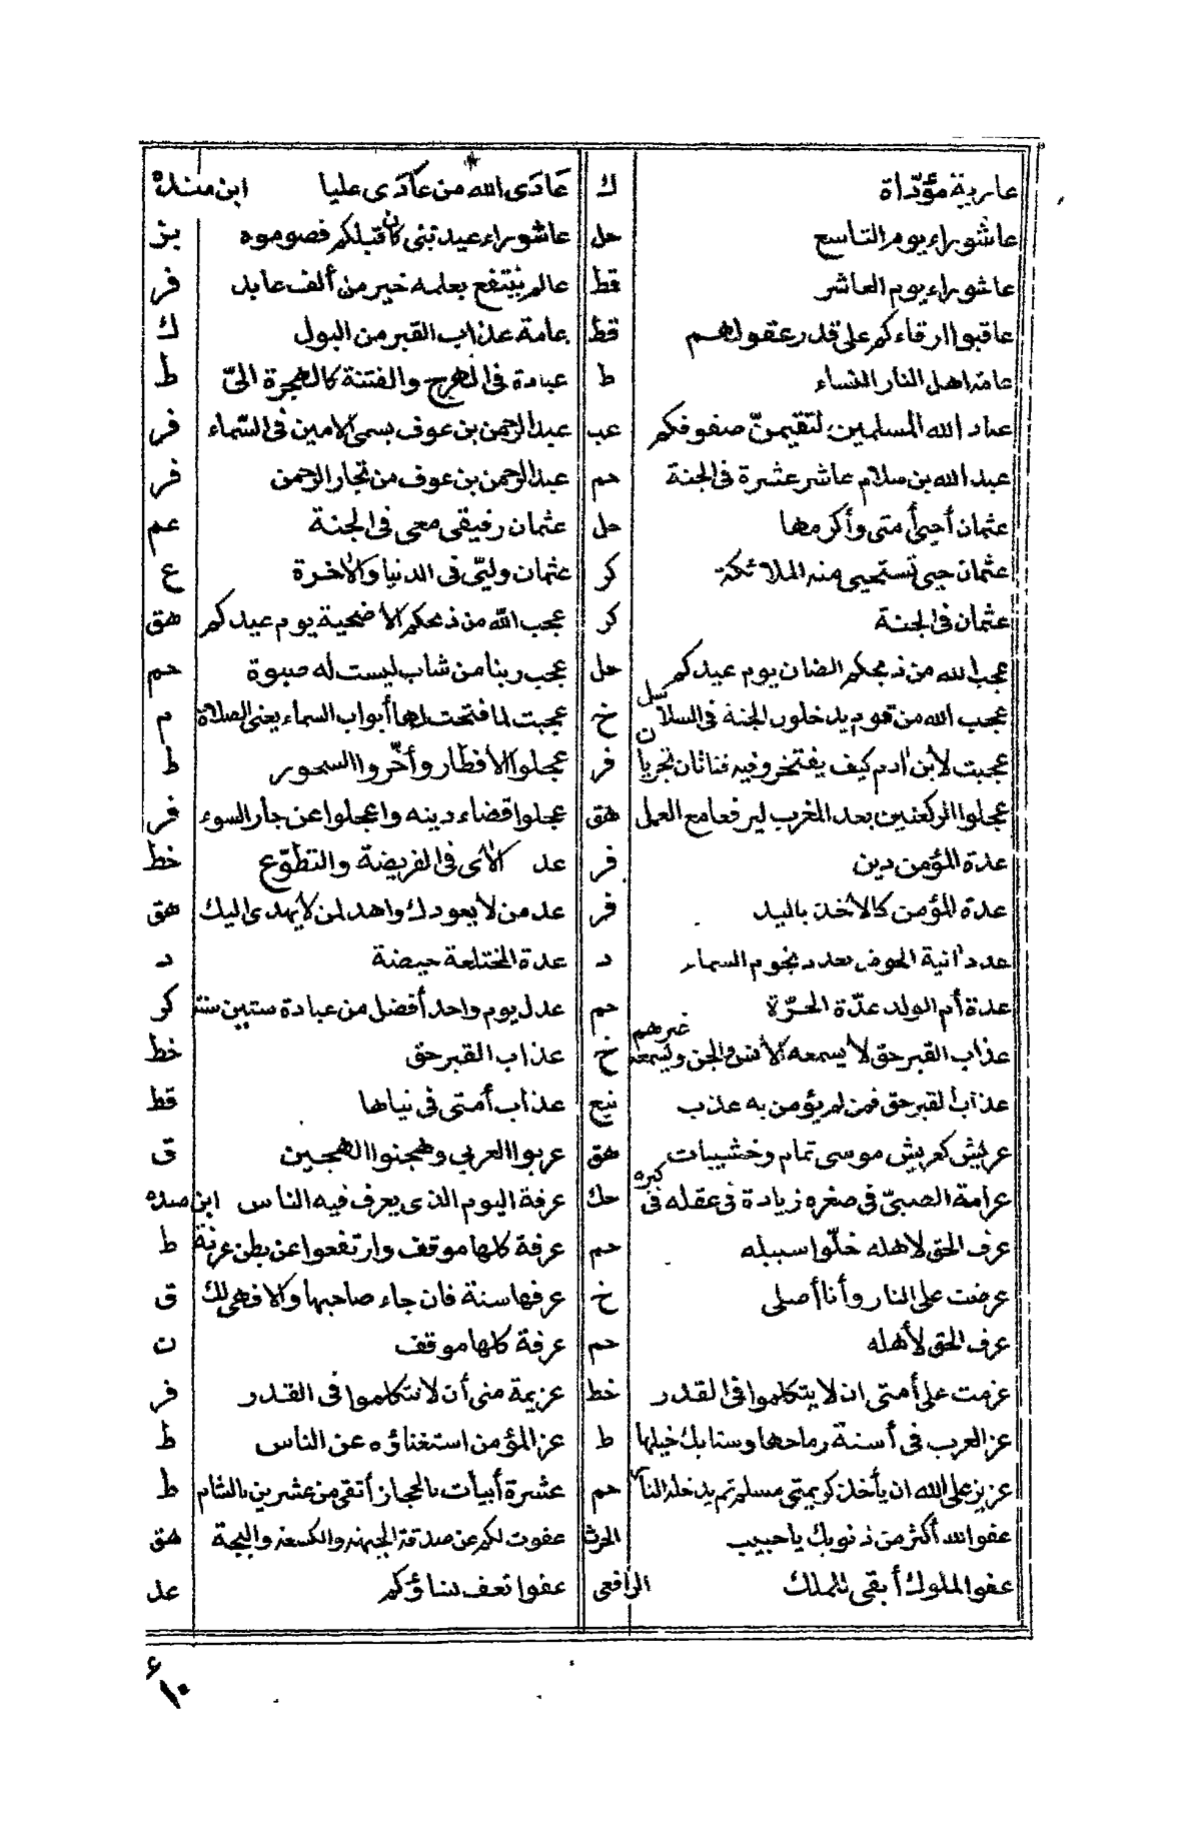 عارية مؤدّاة ك عَادَى الله من عَادَى عليا ابن منده
عاشوراء يوم التاسع حل عاشوراء عيد نبى كان قبلكم فصوموه بز
عاشوراء يوم العاشر قط عالم ينتفع بعلمه خير من ألف عابد فر
عاقبوا ارقاءكم على قدر عقولهم قط عامة عذاب القبر من البول ك
عامة اهل النار النساء ط عبادة فى الهرج والفتنة كالهجرة الىّ ط
عباد الله المسلمين لتقيمنّ صفوفكم عب عبد الرحمن بن عوف يسمى الامين فى السّماء فر
عبد الله بن سلام عاشر عشرة فى الجنة حم عبد الرحمن بن عوف من تجار الرحمن فر
عثمان أحيى أمتى وأكرمها حل عثمان رفيقى معى فى الجنة عم
عثمان حيى تستحيى منه الملائكة كر عثمان وليّى فى الدنيا والآخرة ع
عثمان فى الجنة كر عجب الله من ذبحكم الأضحية يوم عيدكم هق
عجب الله من ذبحكم الضان يوم عيدكم حل عجب ربنا من شاب ليست له صبوة حم
عجب الله من قوم يدخلون الجنة فى السلاسل خ عجبت لها فتحت لها أبواب السماء يعنى الصلاة م
عجبت لابن آدم كيف يفتخر وفيه فنانان تجريان فر عجلوا الأفطار وأخّروا السحور ط
عجلوا الركعتين بعد المغرب ليرفعا مع العمل هق عجلوا قضاء دينه واعجلوا عن جار السوء فر
عدة المؤمن دين فر عد الآى فى الفريضة والتطوّع خط
عدة المؤمن كالأخذ باليد فر عد من لا يعودك واهد لمن لا يهدى اليك هق
عدد آنية الحوض بعدد نجوم السماء د عدة المختلعة حيضة د
عدة أم الولد عدّة الحرّة حم عدل يوم واحد أفضل من عبادة ستين سنة كر
عذاب القبر حق لا يسمعه الانس والجن ويسمعه غيرهم خ عذاب القبر حق خط
عذاب القبر حق فمن لم يؤمن به عذب نيع عذاب أمتى فى نياها قط
عريش كعريش موسى تمام وخشيبات هق عربوا العربى وهجنوا الهجين ق
عرامة الصبىّ فى صغره زيادة فى عقله فى كبره حك عرفة اليوم الذى يعرف فيه الناس ابن منده
عرف الحق لاهله خلّوا سبيله حم عرفة كلها موقف وارتفعوا عن بطن عرنة ط
عرضت على النار وأنا أصلى خ عرفها سنة فان جاء صاحبها والا فهى لك ق
عرف الحق لأهله حم عرفة كلها موقف ن
عزمت على أمتى ان لا يتكلموا فى القدر خط عزيمة منى أن لا تتكلموا فى القدر فر
عز العرب فى أسنة رماحها وسنابك خيلها ط عز المؤمن استغناؤه عن الناس ط
عزيز على الله ان يأخذ كريمتى مسلم ثم يدخله النار حم عشرة أبيات بالحجاز أتقى من عشرين بالشام ط
عفو الله أكثر من ذنوبك يا حبيب الحرث عفوت لكم عن صدقة الجبهة والكسعة والنجة هق
عفو الملوك أبقى للملك الرافعى عفوا تعف نساؤكم عد